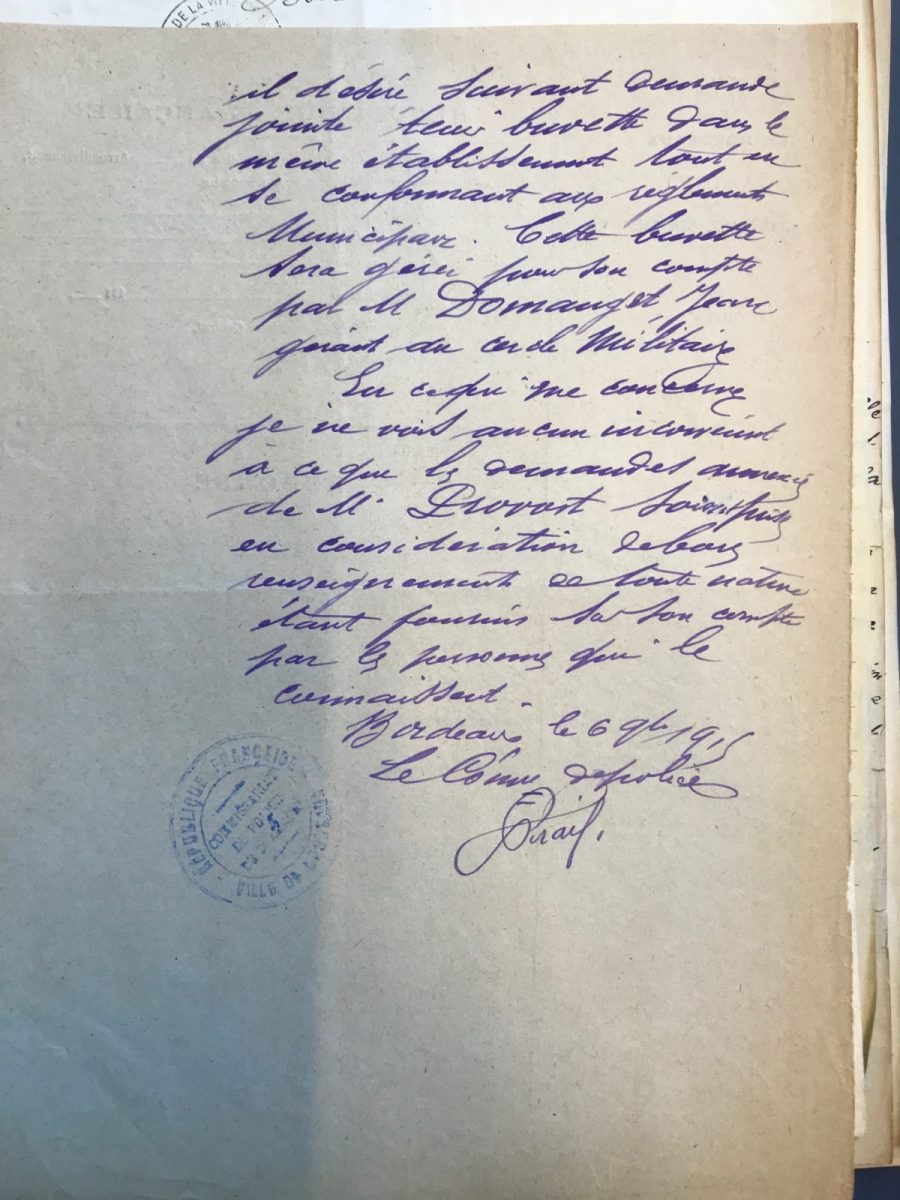 DE LA VILLE
il désire suivant demande
jointe tenir buvette dans le
même établissement tout en
se conformant aux règlements
Municipaux. Cette buvette
sera gérée pour son compte
par M Domanget Jean
gérant du cercle Militaire
En ce qui me concerne
je ne vois aucun inconvénient
à ce que les demandes annexées
de Mr Provost soient prises
en considération de bons
renseignements de toute nature
étant fournis sur son compte
par les personnes qui le
connaissent.
Bordeaux le 6 9bre 1915
Le Commre de police
RÉPUBLIQUE FRANÇAISE
VILLE DE BORDEAUX
COMMISSARIAT
DE POLICE
5